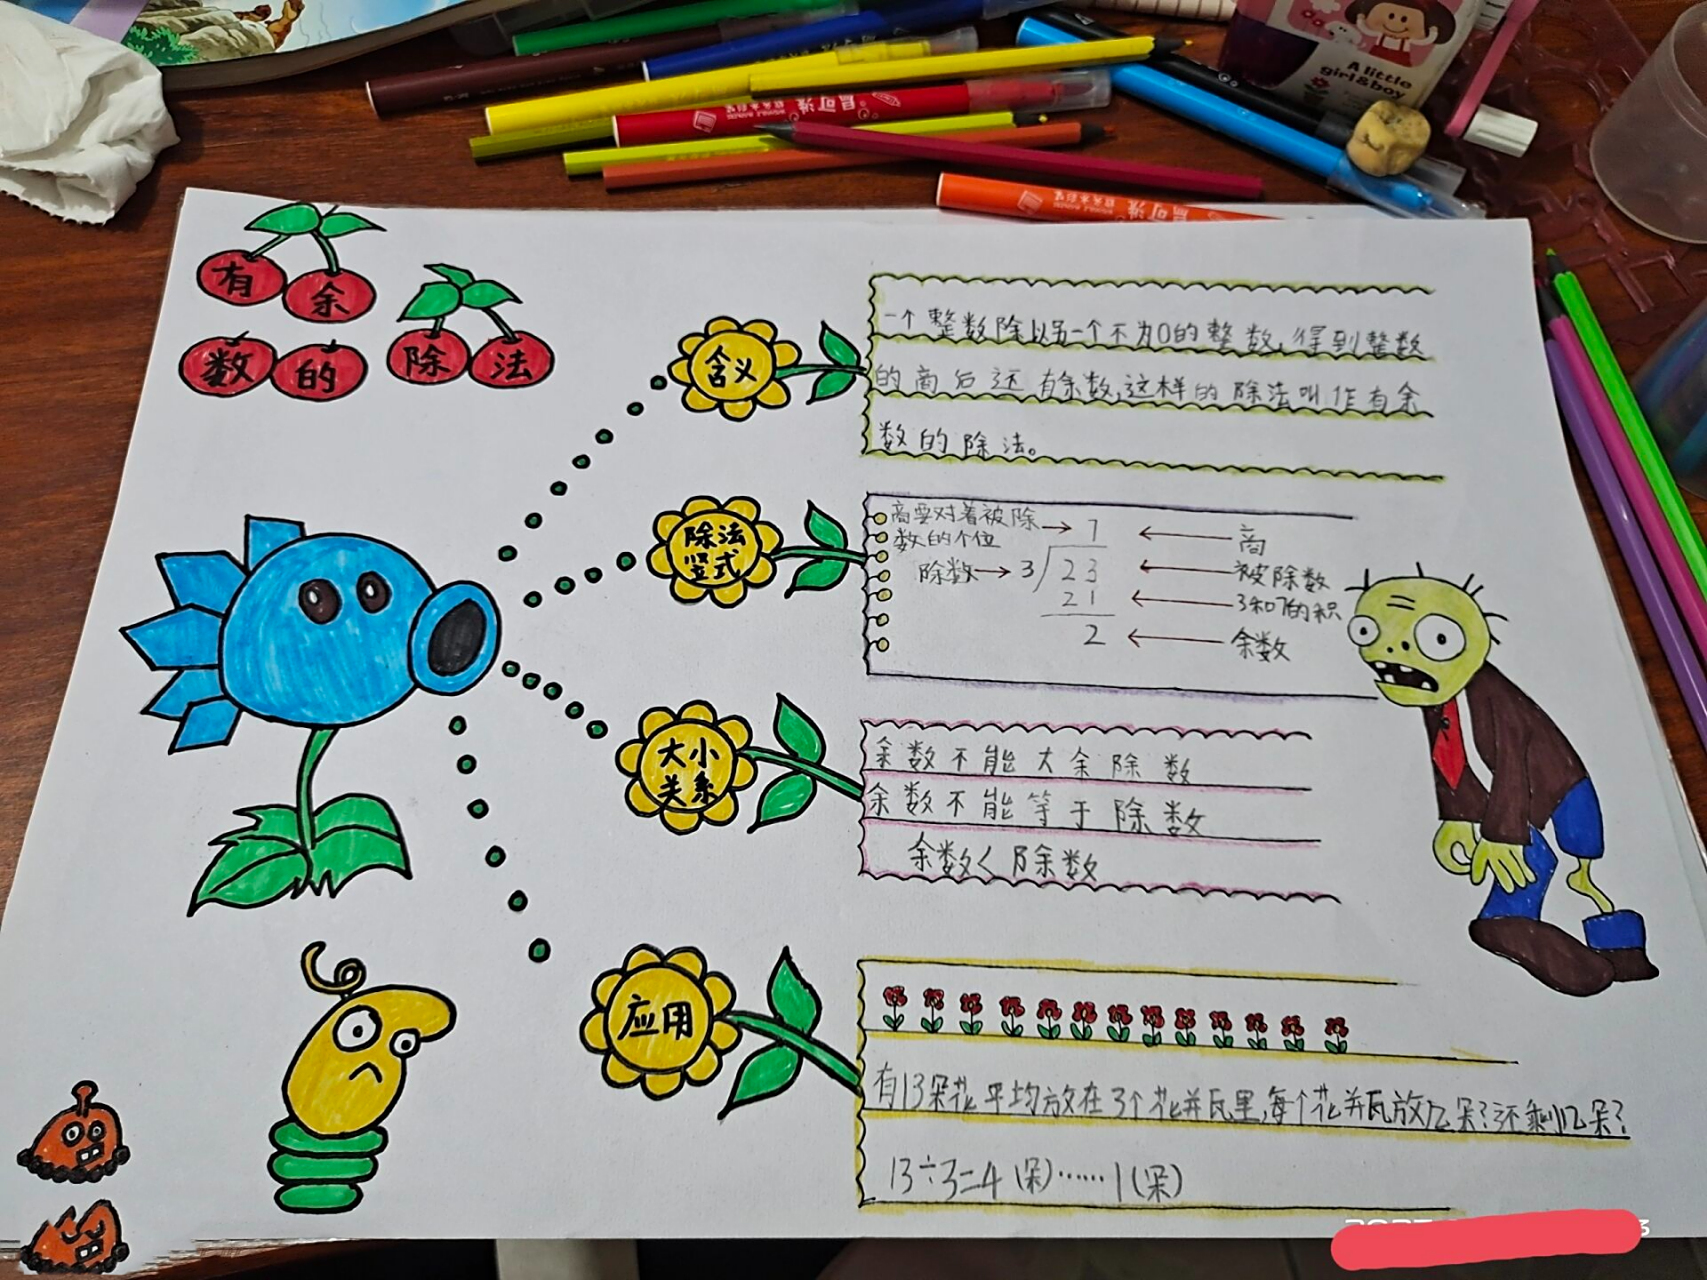 A little
girl&boy
易可洗
易可洗
有余
数的
除法
含义
一个整数除以另一个不为0的整数,得到整数
的商后还有余数,这样的除法叫作有余
数的除法。
除法
竖式
商要对着被除
数的个位
7
商
除数
3
23
被除数
21
3和7的积
2
余数
大小
关系
余数不能大余除数
余数不能等于除数
余数<除数
应用
有13朵花平均放在3个花并瓦里,每个花并瓦放几朵?还剩几朵?
13÷3=4(朵)……1(朵)